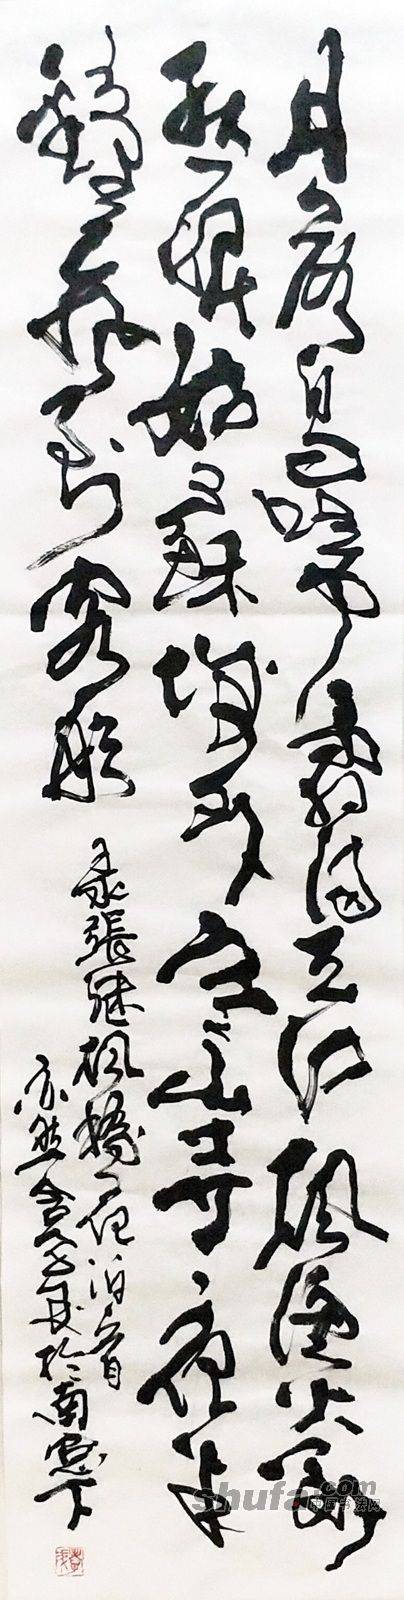 月落烏啼霜滿天江楓漁火對
愁眠姑蘇城外寒山寺夜半
鐘聲到客船
录張継楓橋夜泊一首
亦於南窗下
shufa.com
中国书法网